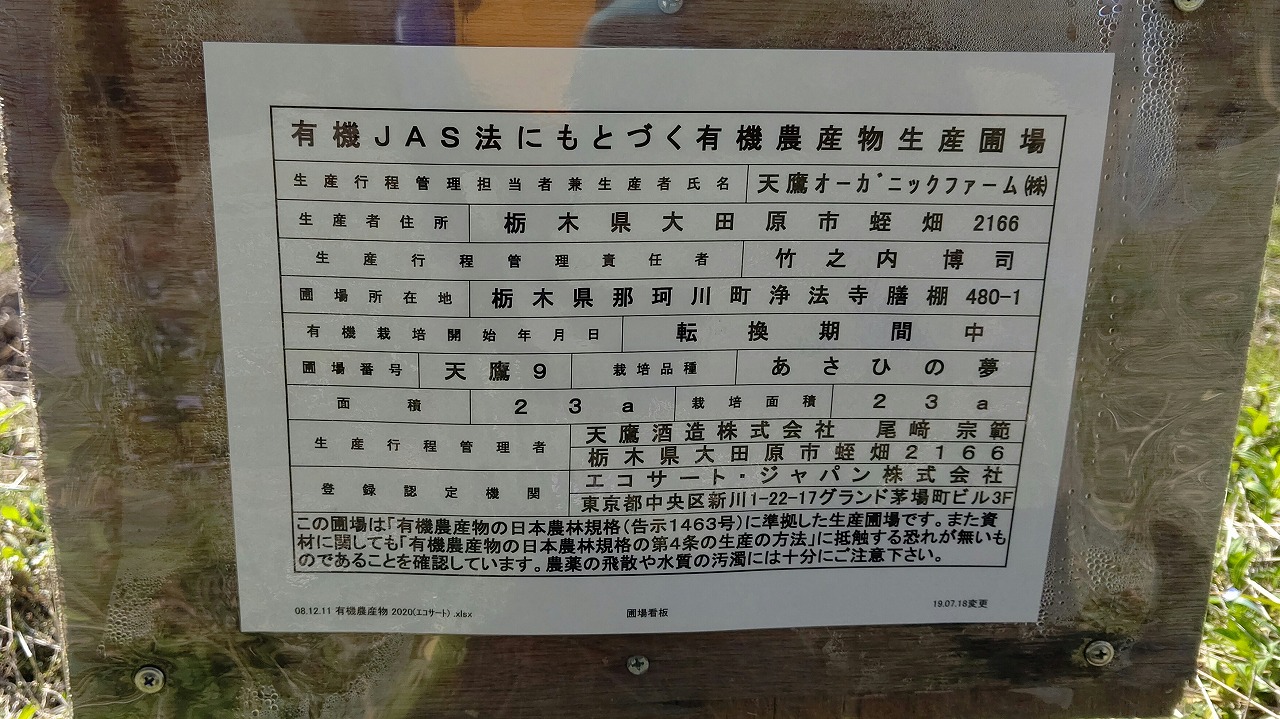 有機JAS法にもとづく有機農産物生産圃場
生産行程管理担当者兼生産者氏名 天鷹オーガニックファーム㈱
生産者住所 栃木県大田原市蛭畑 2166
生産行程管理責任者 竹之内 博司
圃場所在地 栃木県那珂川町浄法寺膳棚 480-1
有機栽培開始年月日 転換期間中
圃場番号 天鷹9 栽培品種 あさひの夢
面積 23a 栽培面積 23a
生産行程管理者 天鷹酒造株式会社 尾﨑 宗範
栃木県大田原市蛭畑2166
登録認定機関 エコサート・ジャパン株式会社
東京都中央区新川1-22-17グランド茅場町ビル3F
この圃場は「有機農産物の日本農林規格(告示1463号)に準拠した生産圃場です。また資
材に関しても「有機農産物の日本農林規格の第4条の生産の方法」に抵触する恐れが無いも
のであることを確認しています。農薬の飛散や水質の汚濁には十分にご注意下さい。
08.12.11 有機農産物 2020(エコサート) .xlsx 圃場看板 19.07.18変更